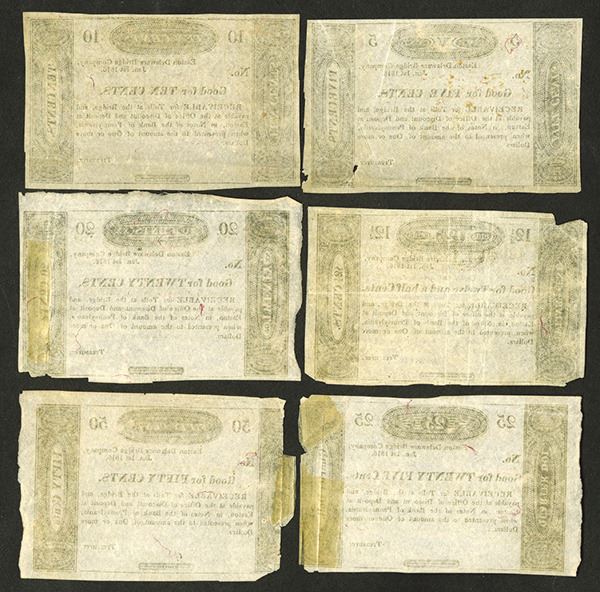 10 10
Easton Delaware Bridge Company,
Jan. 1st 1816.
No.
Good for TEN CENTS,
RECEIVABLE for Tolls at the Bridge, and
payable at the Office of Discount and Deposit at
Easton, in Notes of the Bank of Pennsylvania,
when presented to the amount of One or more
Dollars.
Treasurer.
TEN CENTS
5
Easton Delaware Bridge Company,
Jan. 1st 1816.
No.
Good for FIVE CENTS,
RECEIVABLE for Tolls at the Bridge, and
payable at the Office of Discount and Deposit at
Easton, in Notes of the Bank of Pennsylvania,
when presented to the amount of One or more
Dollars.
Treasurer.
FIVE CENTS
20 20
Easton Delaware Bridge Company,
Jan. 1st 1816.
No.
Good for TWENTY CENTS,
RECEIVABLE for Tolls at the Bridge, and
payable at the Office of Discount and Deposit
Easton, in Notes of the Bank of Pennsylvania,
when presented to the amount of One or more
Dollars.
Treasurer.
12½ 12½
Easton Delaware Bridge Company,
Jan. 1st 1816.
No.
Good for Twelve and a half Cents,
RECEIVABLE for Tolls at the Bridge, and
payable at the Office of Discount and Deposit at
Easton, in Notes of the Bank of Pennsylvania,
when presented to the amount of One or more
Dollars.
Treasurer.
12½ CENTS
50 50
Easton Delaware Bridge Company,
Jan. 1st 1816.
No.
Good for FIFTY CENTS,
RECEIVABLE for Tolls at the Bridge, and
payable at the Office of Discount and Deposit at
Easton, in Notes of the Bank of Pennsylvania,
when presented to the amount of One or more
Dollars.
Treasurer.
FIFTY CENTS
25 25
Easton Delaware Bridge Company,
Jan. 1st 1816.
No.
Good for TWENTY FIVE Cents,
RECEIVABLE for Tolls at the Bridge, and
payable at the Office of Discount and Deposit at
Easton, in Notes of the Bank of Pennsylvania,
when presented to the amount of One or more
Dollars.
Treasurer.